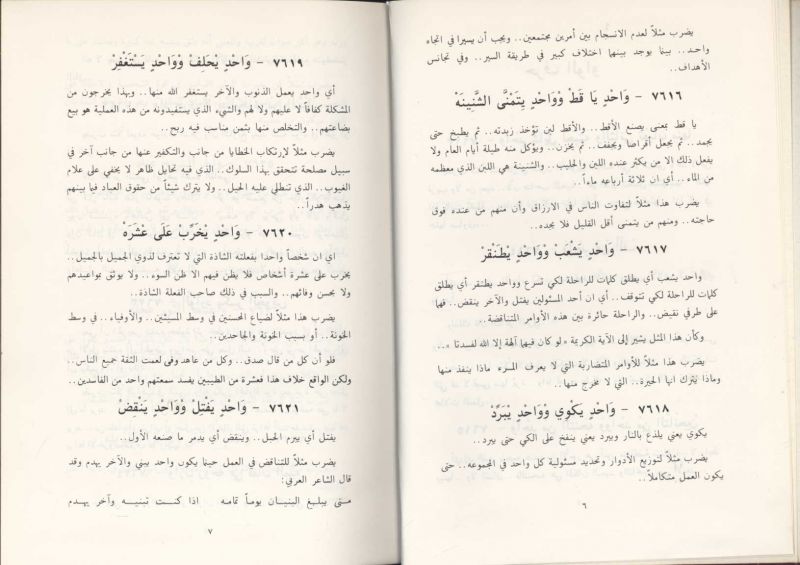 يضرب مثلاً لعدم الانسجام بين أمرين مجتمعين.. ويجب أن يسيرا في اتجاه
واحد.. بينما يوجد بينهما اختلاف كبير في طريقة السير.. وفي تجانس
الأهداف..
٧٦١٦ - وَاحْدٍ يَا قَطْ وْوَاحْدٍ يِتْمَنَّى الشَّنِينَهْ
يا قط بمعنى يصنع الأقط.. والأقط لبن تؤخذ زبدته.. ثم يطبخ حتى
يجمد.. ثم يجعل أقراصا ويجفف.. ثم يخزن.. ويؤكل منه طيلة أيام العام ولا
يفعل ذلك الا من يكثر عنده اللبن والحليب.. والشنينة هي اللبن الذي معظمه
من الماء.. أي ان ثلاثة أرباعه ماءاً..
يضرب هذا مثلاً لتفاوت الناس في الارزاق وأن منهم من عنده فوق
حاجته.. ومنهم من يتمنى أقل القليل فلا يجده..
٧٦١٧ - وَاحْدٍ يَشْعَبْ وْوَاحْدٍ يْطَنْقِرْ
واحد يشعب أي يطلق كلمات للراحلة لكي تسرع وواحد يطنقر أي يطلق
كلمات للراحلة لكي تتوقف.. أي ان أحد المسئولين يفتل والآخر ينقض.. فهما
على طرفي نقيض.. والراحلة حائرة بين هذه الأوامر المتناقضة..
وكأن هذا المثل يشير إلى الآية الكريمة «لو كان فيهما آلهة إلا الله لفسدتا»..
يضرب هذا مثلاً للأوامر المتضاربة التي لا يعرف المرء ماذا ينفذ منها
وماذا يَتْرك انها الحيرة.. التي لا مخرج منها..
٧٦١٨ - وَاحْدٍ يَكْوِي وْوَاحْدٍ يْبَرِّدْ
يكوي يعني يلذع بالنار ويبرد يعني ينفخ على الكي حتى يبرد..
يضرب مثلاً لتوزيع الأدوار وتحديد مسئولية كل واحد في المجموعه.. حتى
يكون العمل متكاملاً..
٦
٧٦١٩ - وَاحْدٍ يَحْلِفْ وْوَاحْدٍ يَسْتَغْفِرْ
أي واحد يعمل الذنوب والآخر يستغفر الله منها.. وبهذا يخرجون من
المشكلة كفافاً لا عليهم ولا لهم والشيء الذي يستفيدونه من هذه العملية هو بيع
بضاعتهم.. والتخلص منها بثمن مناسب فيه ربح..
يضرب مثلاً لإرتكاب الخطايا من جانب والتكفير عنها من جانب آخر في
سبيل مصلحة تتحقق بهذا السلوك.. الذي فيه تحايل ظاهر لا يخفى على علام
الغيوب.. الذي تنطلي عليه الحيل.. ولا يترك شيئاً من حقوق العباد فيما بينهم
يذهب هدراً..
٧٦٢٠ - وَاحْدٍ يْخَرِّبْ عَلَى عْشَرَهْ
اي ان شخصاً واحدا بفعلته الشاذة التي لا تعترف لذوي الجميل بالجميل..
يخرب على عشرة أشخاص فلا يظن فيهم الا ظن السوء.. ولا يوثق بمواعيدهم
ولا بحسن وفائهم.. والسبب في ذلك صاحب الفعلة الشاذة..
يضرب هذا مثلاً لضياع المحسنين في وسط المسيئين.. والأوفياء.. في وسط
الخونة.. أو بسبب الخونة والجاحدين..
فلو أن كل من قال صدق.. وكل من عاهد وفى لعمت الثقة جميع الناس..
ولكن الواقع خلاف هذا فعشرة من الطيبين يفسد سمعتهم واحد من الفاسدين..
٧٦٢١ - وَاحْدٍ يَفْتِلْ وْوَاحْدٍ يَنْقِضْ
يفتل أي يبرم الحبل.. وينقض أي يدمر ما صنعه الأول..
يضرب مثلاً للتناقض في العمل حينما يكون واحد يبني والآخر يهدم وقد
قال الشاعر العربي:
متى يبلغ البنيان يوماً تمامه .. اذا كنت تبنيه وآخر يهدم
٧